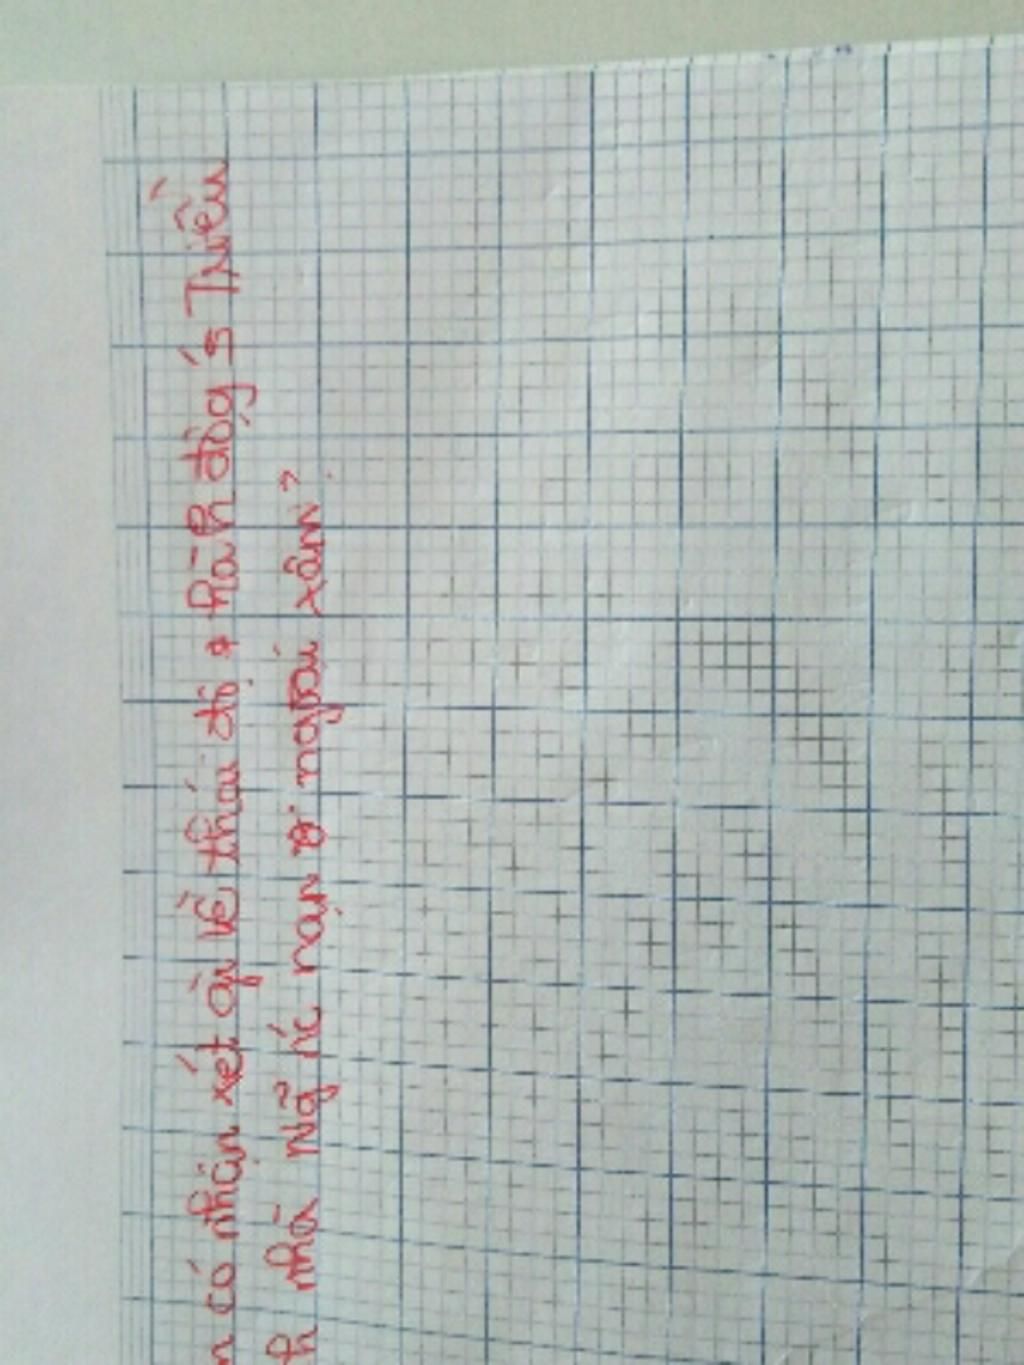 có nhận xét gì về thái độ & hành động's Triều
nhà Ng̃ ic nạn ngoài xâm?